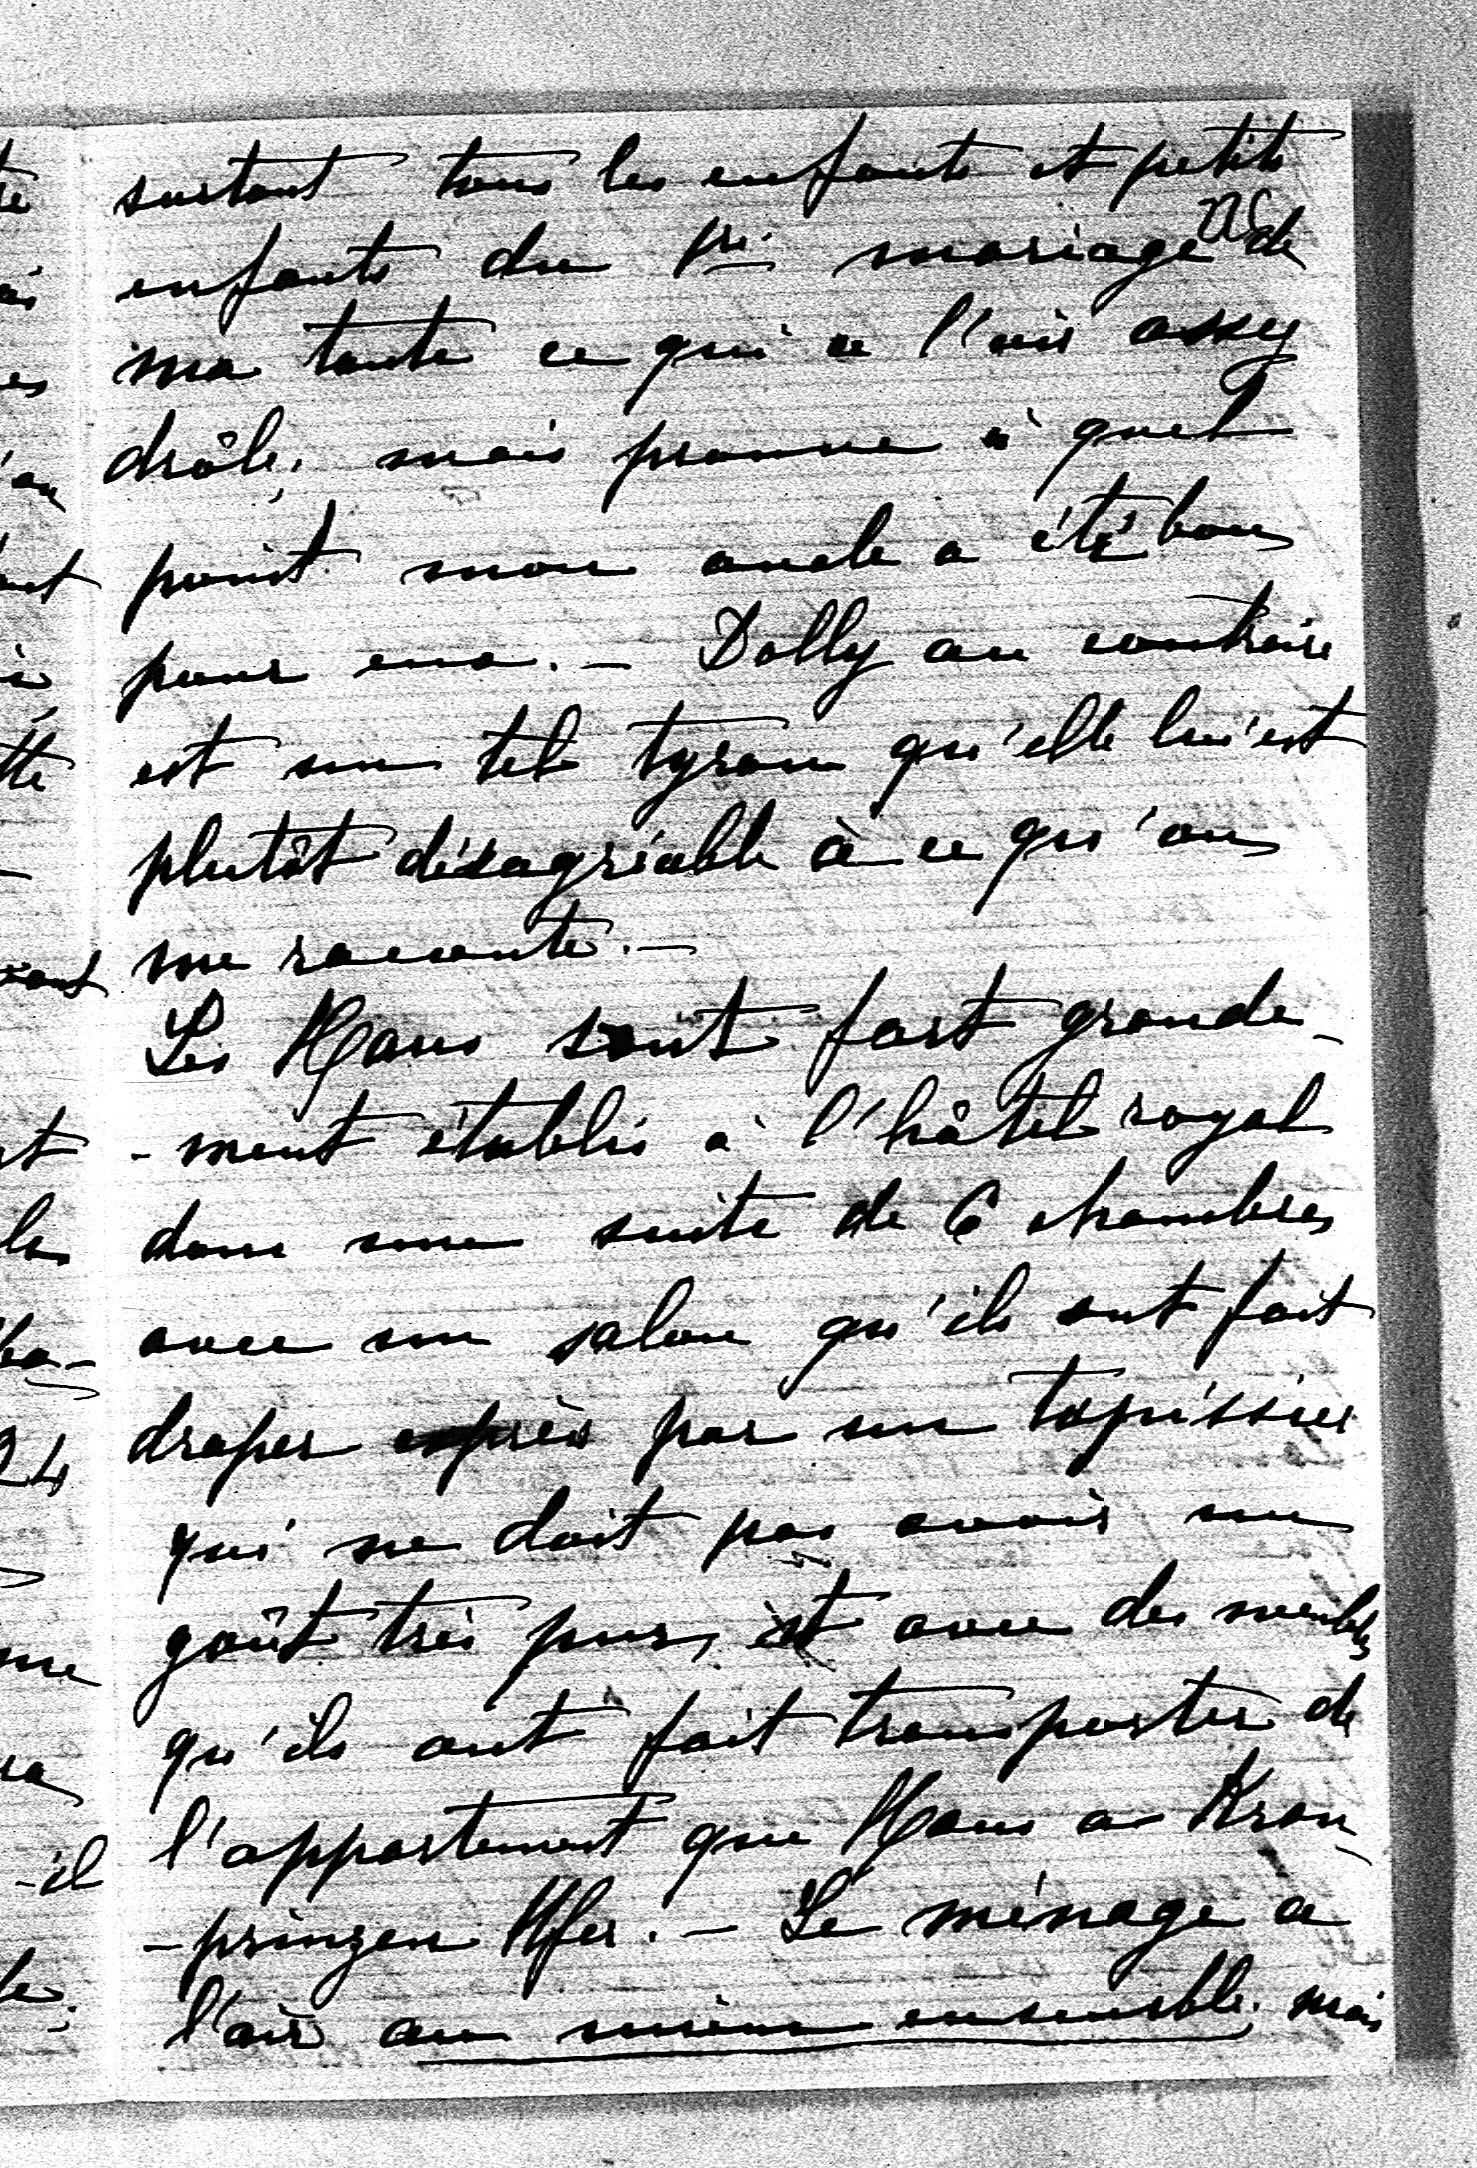 surtout tous les enfants et petits
enfants du 1er mariage de
ma tante ce qui a l'air assez
drôle, mais prouve à quel
point mon oncle a été bon
pour eux. — Dolly au contraire
est un tel tyran qu'elle lui est
plutôt désagréable à ce qu'on
me raconte. —
Les Hans sont fort grande-
-ment établis à l'hôtel royal
dans une suite de 6 chambres
avec un salon qu'ils ont fait
draper exprès par un tapissier
qui ne doit pas avoir un
goût très pur, et avec des meubles
qu'ils ont fait transporter de
l'appartement que Hans a Kron-
-prinzen Ufer. — Le ménage a
l'air au mieux ensemble, mais